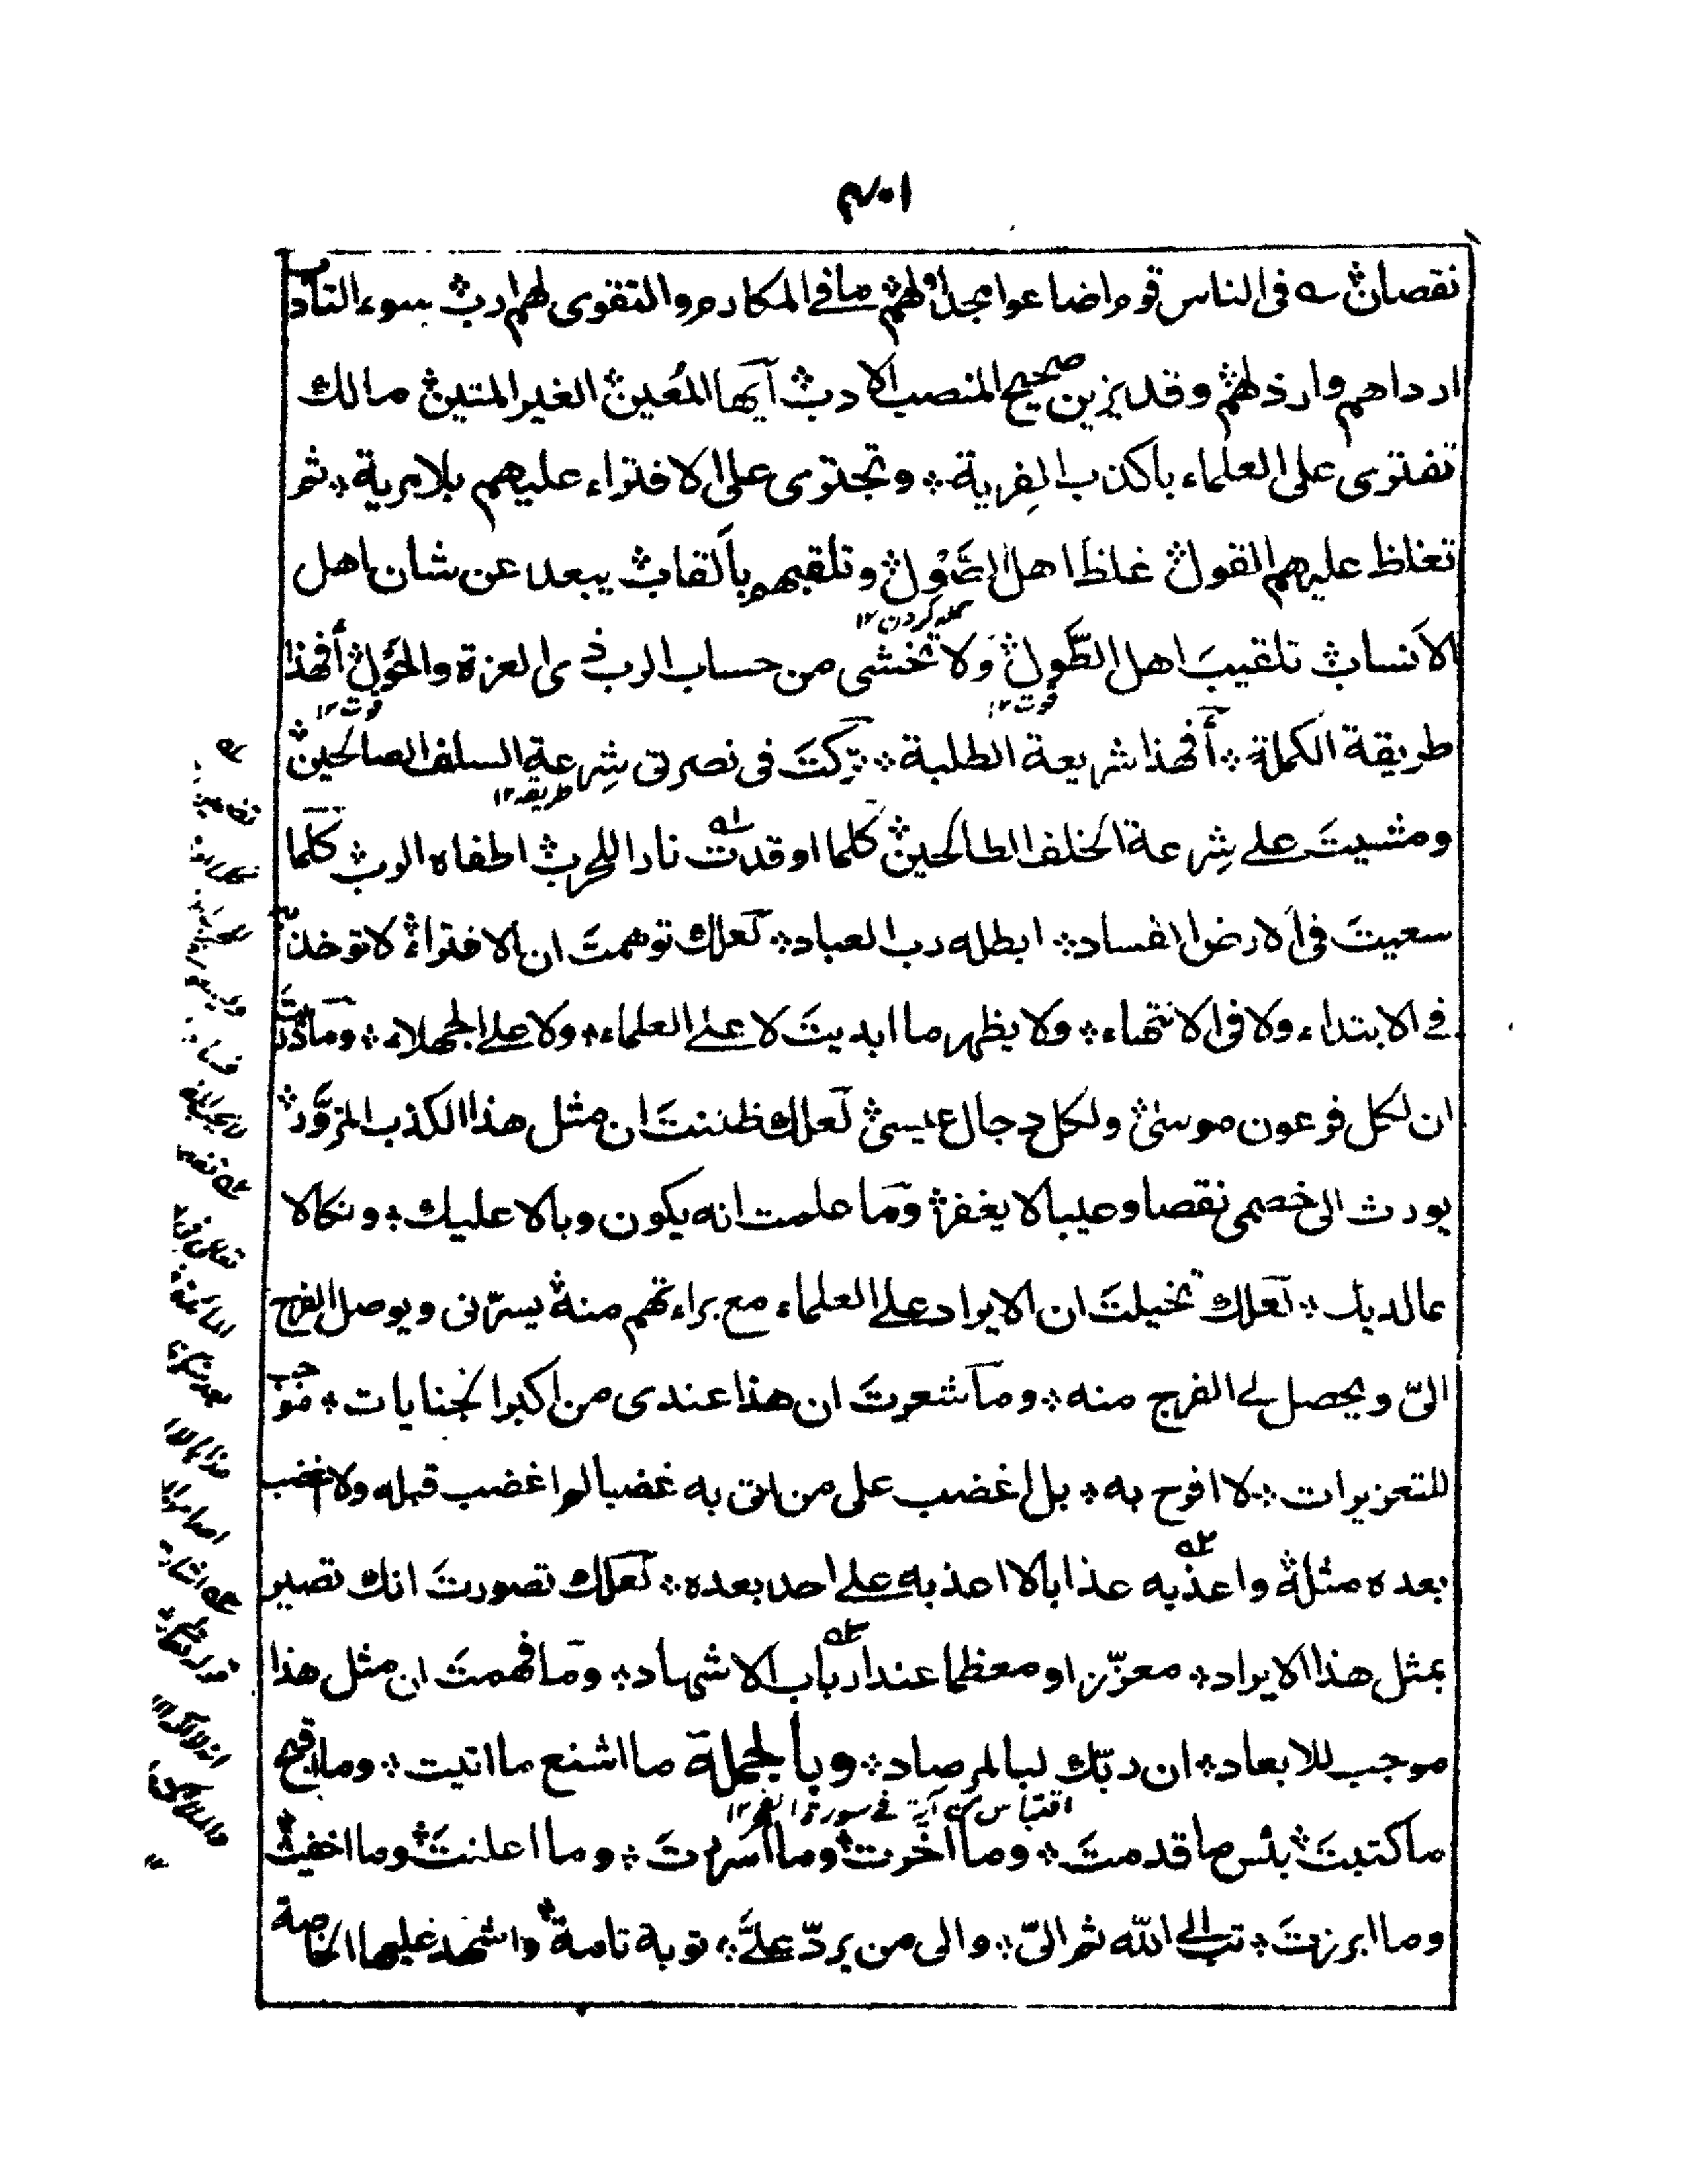 ۴۰۱
نقصان؞ سه فی الناس قوم اضاعوا مجد اولهم؞ ما فی المکارم والتقوی لهم ارب؞ بسوء التادب
ارداهم وارذلهم؞ وقد یزین صحیح المنصب الادب؞ آیها المُعین؞ الغیر المتین؞ مالک
تفتری علی العلماء باکذب الفِریة؞ وتجتری علی الافتراء علیهم بلا مریة؞ ثم
تغلظ علیهم القول؞ غلظَ اهل الصَّوْل؞ وتلقبهم بالقاب؞ یبعد عن شان اهل
حمله کردن ۱۲
الانساب؞ تلقیبَ اهل الطَّول؞ ولا تخشی من حساب الرب ذی العزة والحَول؞ أفهذا
قوت ۱۲
قوت ۱۲
طریقة الکملة؞ أفهذا شریعة الطلبة؞ ترکتَ فی نصرتی شِرعة السلف الصالحین؞
طریقه ۱۲
ومشیتَ علی شِرعة الخلف الطالحین؞ کلما اوقدت نارا للحرب؞ اطفاه الرب؞ کلما
سعیتَ فی الارض الفساد؞ ابطله رب العباد؞ لعلک توهمتَ ان الافتراء؞ لا توخذ به
فی الابتداء، ولا فی الانتهاء؞ ولا یظهر ما ابدیتَ لا علی العلماء؞ ولا علی الجهلاء؞ وما دریت
ان لکل فرعون موسیٰ؞ ولکل دجال عیسیٰ؞ لعلک ظننتَ ان مثل هذا الکذب المزوَّر؞
یورث الی خصمی نقصا وعیبا لا یغفر؞ وما علمت انه یکون وبالا علیک؞ ونکالا
عالدیک؞ لعلک تخیلتَ ان الایراد علی العلماء مع براءتهم منه؞ یسرّنی ویوصل الفرح
الیّ ویحصل لی الفرح منه؞ وما شعرتَ ان هذا عندی من اکبر الجنایات؞ موجب
للتعزیرات؞ لا افرح به؞ بل اغضب علی من اتی به غضبا لم اغضب قبله ولا اغضب
بعده مثله؞ واعذبه عذابا لا اعذبه علی احد بعده؞ لعلک تصورتَ انک تصیر
بمثل هذا الایراد؞ معزّزا ومعظما عند ارباب الاشهاد؞ وما فهمتَ ان مثل هذا
موجب للابعاد؞ ان ربّک لبالمرصاد؞ وبالجملة ما اشنع ما اتیت؞ وما اقبح
اقتباس من آیة فی سورة الفجر ۱۲
ما کتبتَ؞ بئس ما قدمتَ؞ وما اخّرت؞ وما اسررتَ؞ وما اعلنتَ؞ وما اخفیت؞
وما ابرزتَ؞ تب الی الله ثم الیّ؞ والی من یردّ علیَّ؞ توبة تامة؞ واشهد علیها الخاصة